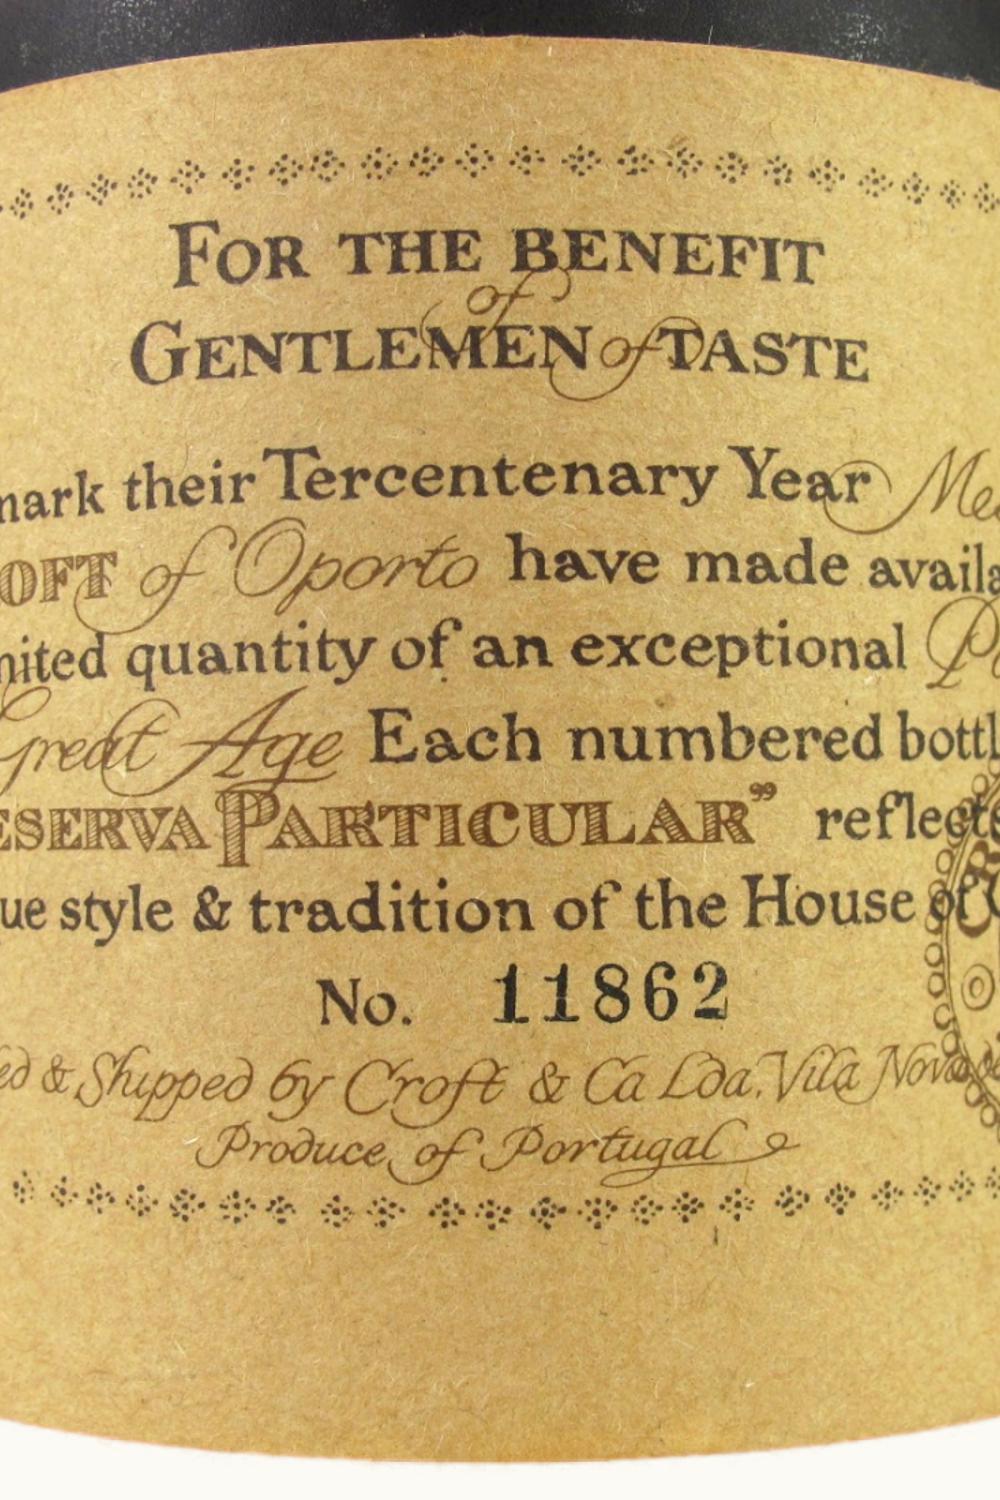 FOR THE BENEFIT
of
GENTLEMEN of TASTE
mark their Tercentenary Year
OFT of Oporto have made availa
mited quantity of an exceptional
Great Age Each numbered bottl
ESERVA PARTICULAR” reflects
ue style & tradition of the House of
No. 11862
ed & Shipped by Croft & Ca Lda. Vila Nova
Produce of Portugal